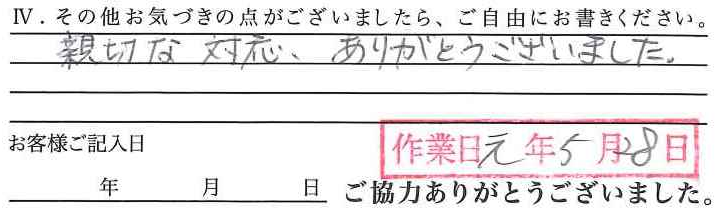 Ⅳ．その他お気づきの点がございましたら、ご自由にお書きください。
親切な対応、ありがとうございました。
お客様ご記入日
作業日元年5月28日
年　月　日
ご協力ありがとうございました。